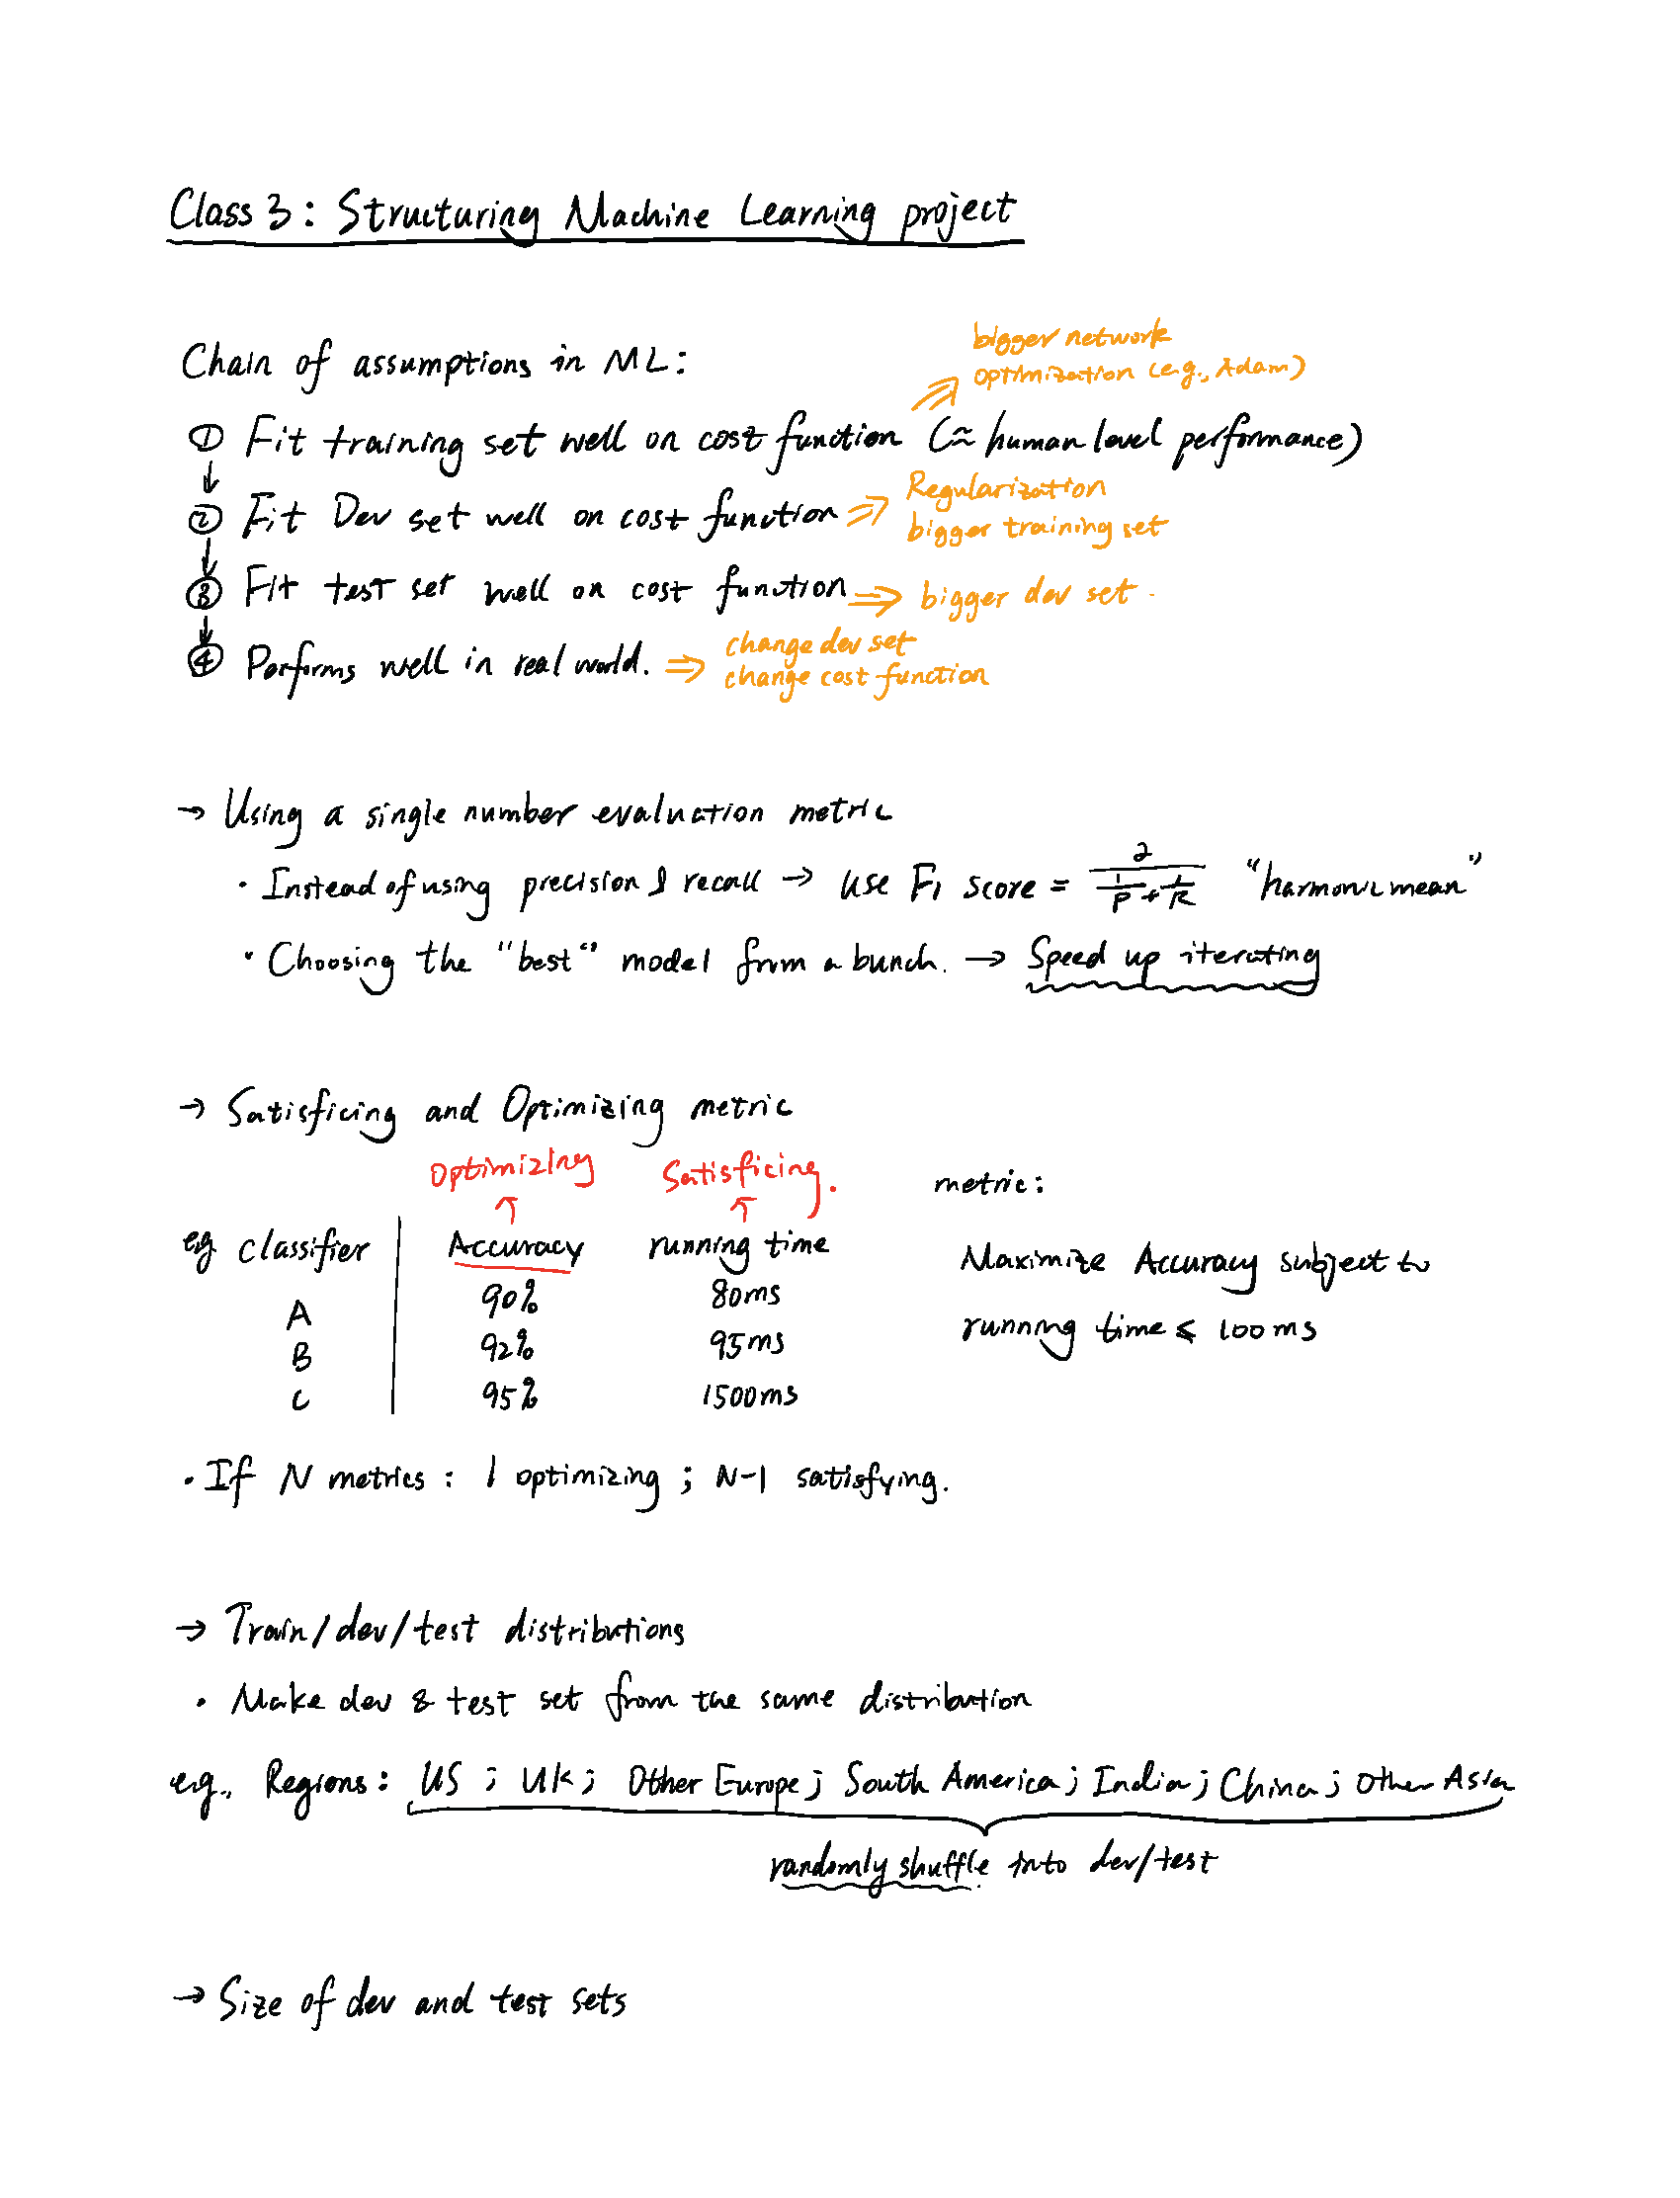 Class 3: Structuring Machine Learning project
Chain of assumptions in ML:
bigger network
optimization (e.g., Adam)
① Fit training set well on cost function (≈ human level performance)
↓
② Fit Dev set well on cost function ⇒ Regularization
bigger training set
↓
③ Fit test set well on cost function ⇒ bigger dev set.
↓
④ Performs well in real world. ⇒ change dev set
change cost function
→ Using a single number evaluation metric
· Instead of using precision & recall → use F1 score = 2/(1/P + 1/R) "harmonic mean"
· Choosing the "best" model from a bunch. → Speed up iterating
→ Satisficing and Optimizing metric
Optimizing Satisficing.
↑ ↑
metric:
eg classifier | Accuracy running time
A 90% 80ms
B 92% 95ms
C 95% 1500ms
Maximize Accuracy subject to
running time ≤ 100ms
· If N metrics: 1 optimizing; N-1 satisfying.
→ Train/dev/test distributions
· Make dev & test set from the same distribution
e.g., Regions: US; UK; Other Europe; South America; India; China; Other Asia
randomly shuffle into dev/test
→ Size of dev and test sets